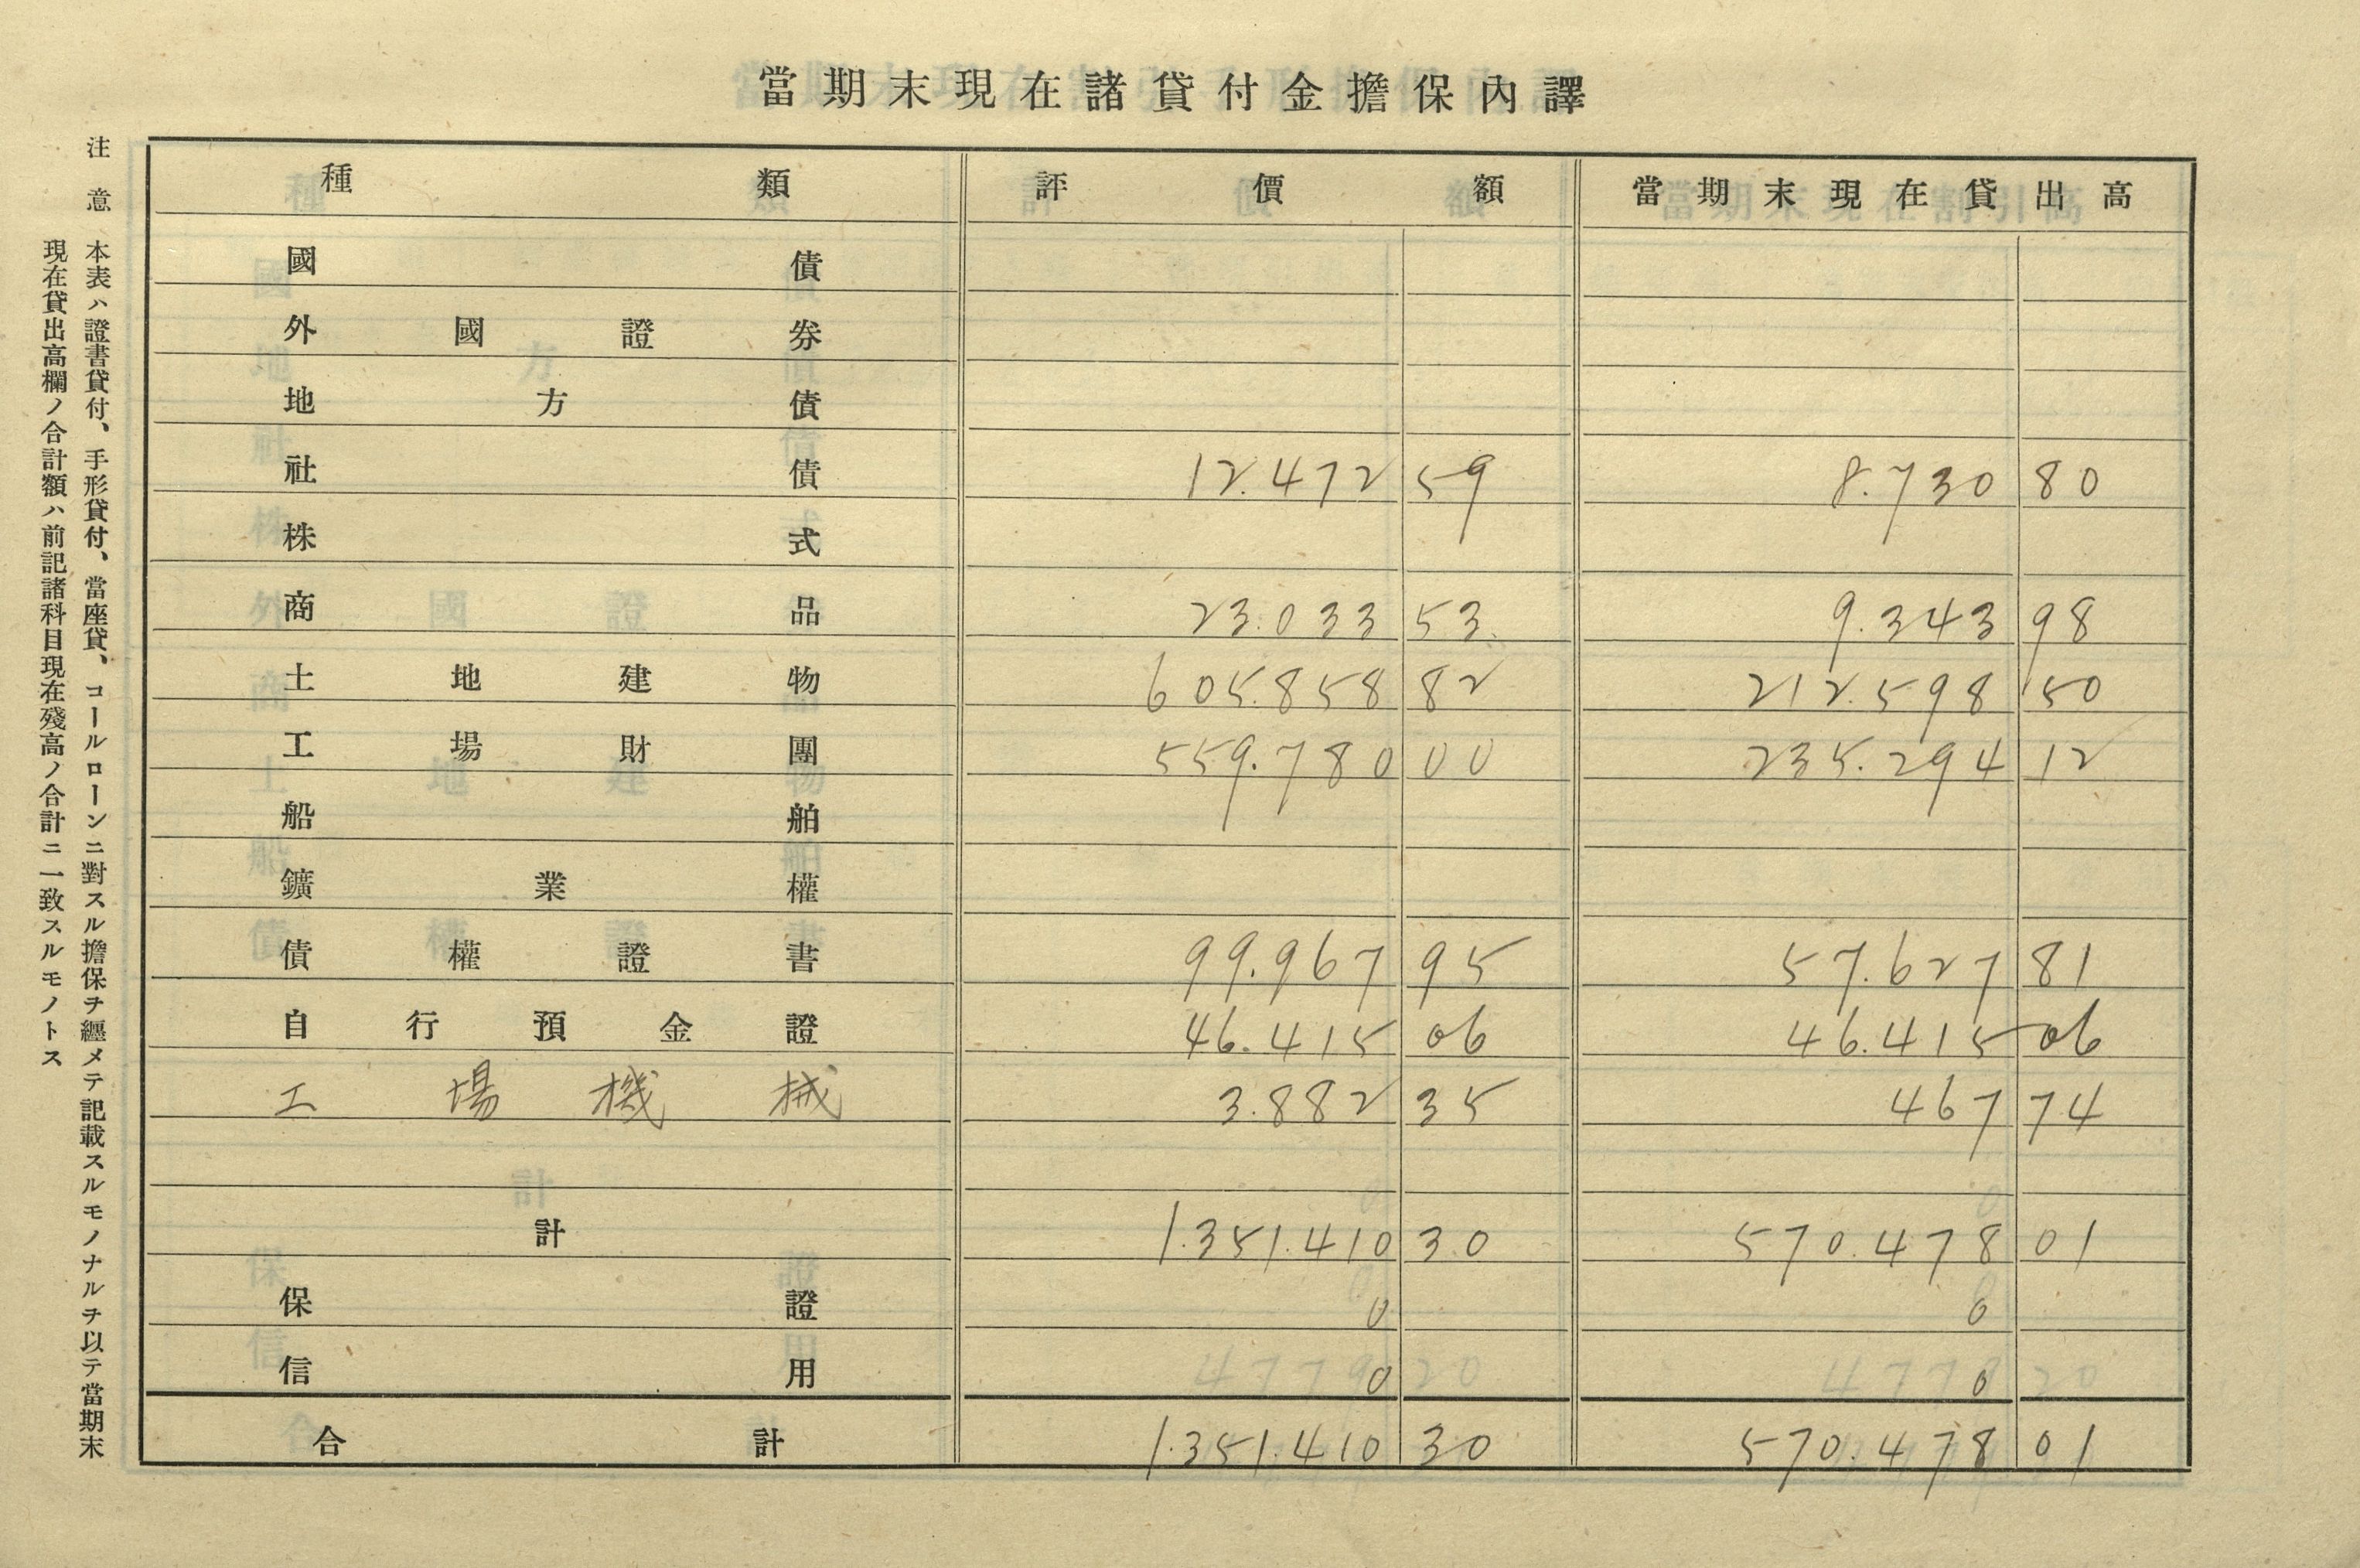 當期末現在諸貸付金擔保內譯
種類 評價額 當期末現在貸出高
國債
外國證券
地方債
社債 12.472 59 8.730 80
株式
商品 23.033 53 9.343 98
土地建物 605.858 82 212.598 50
工場財團 559.780 00 235.294 12
船舶
鑛業權
債權證書 99.967 95 57.627 81
自行預金證 46.415 06 46.415 06
工場機械 3.882 35 467 74
計 1.351.410 30 570.478 01
保證 0 0
信用 0 0
合計 1.351.410 30 570.478 01
注意 本表ハ證書貸付、手形貸付、當座貸、コールローンニ對スル擔保ヲ纒メテ記載スルモノナルヲ以テ當期末
現在貸出高欄ノ合計額ハ前記諸科目現在殘高ノ合計ニ一致スルモノトス